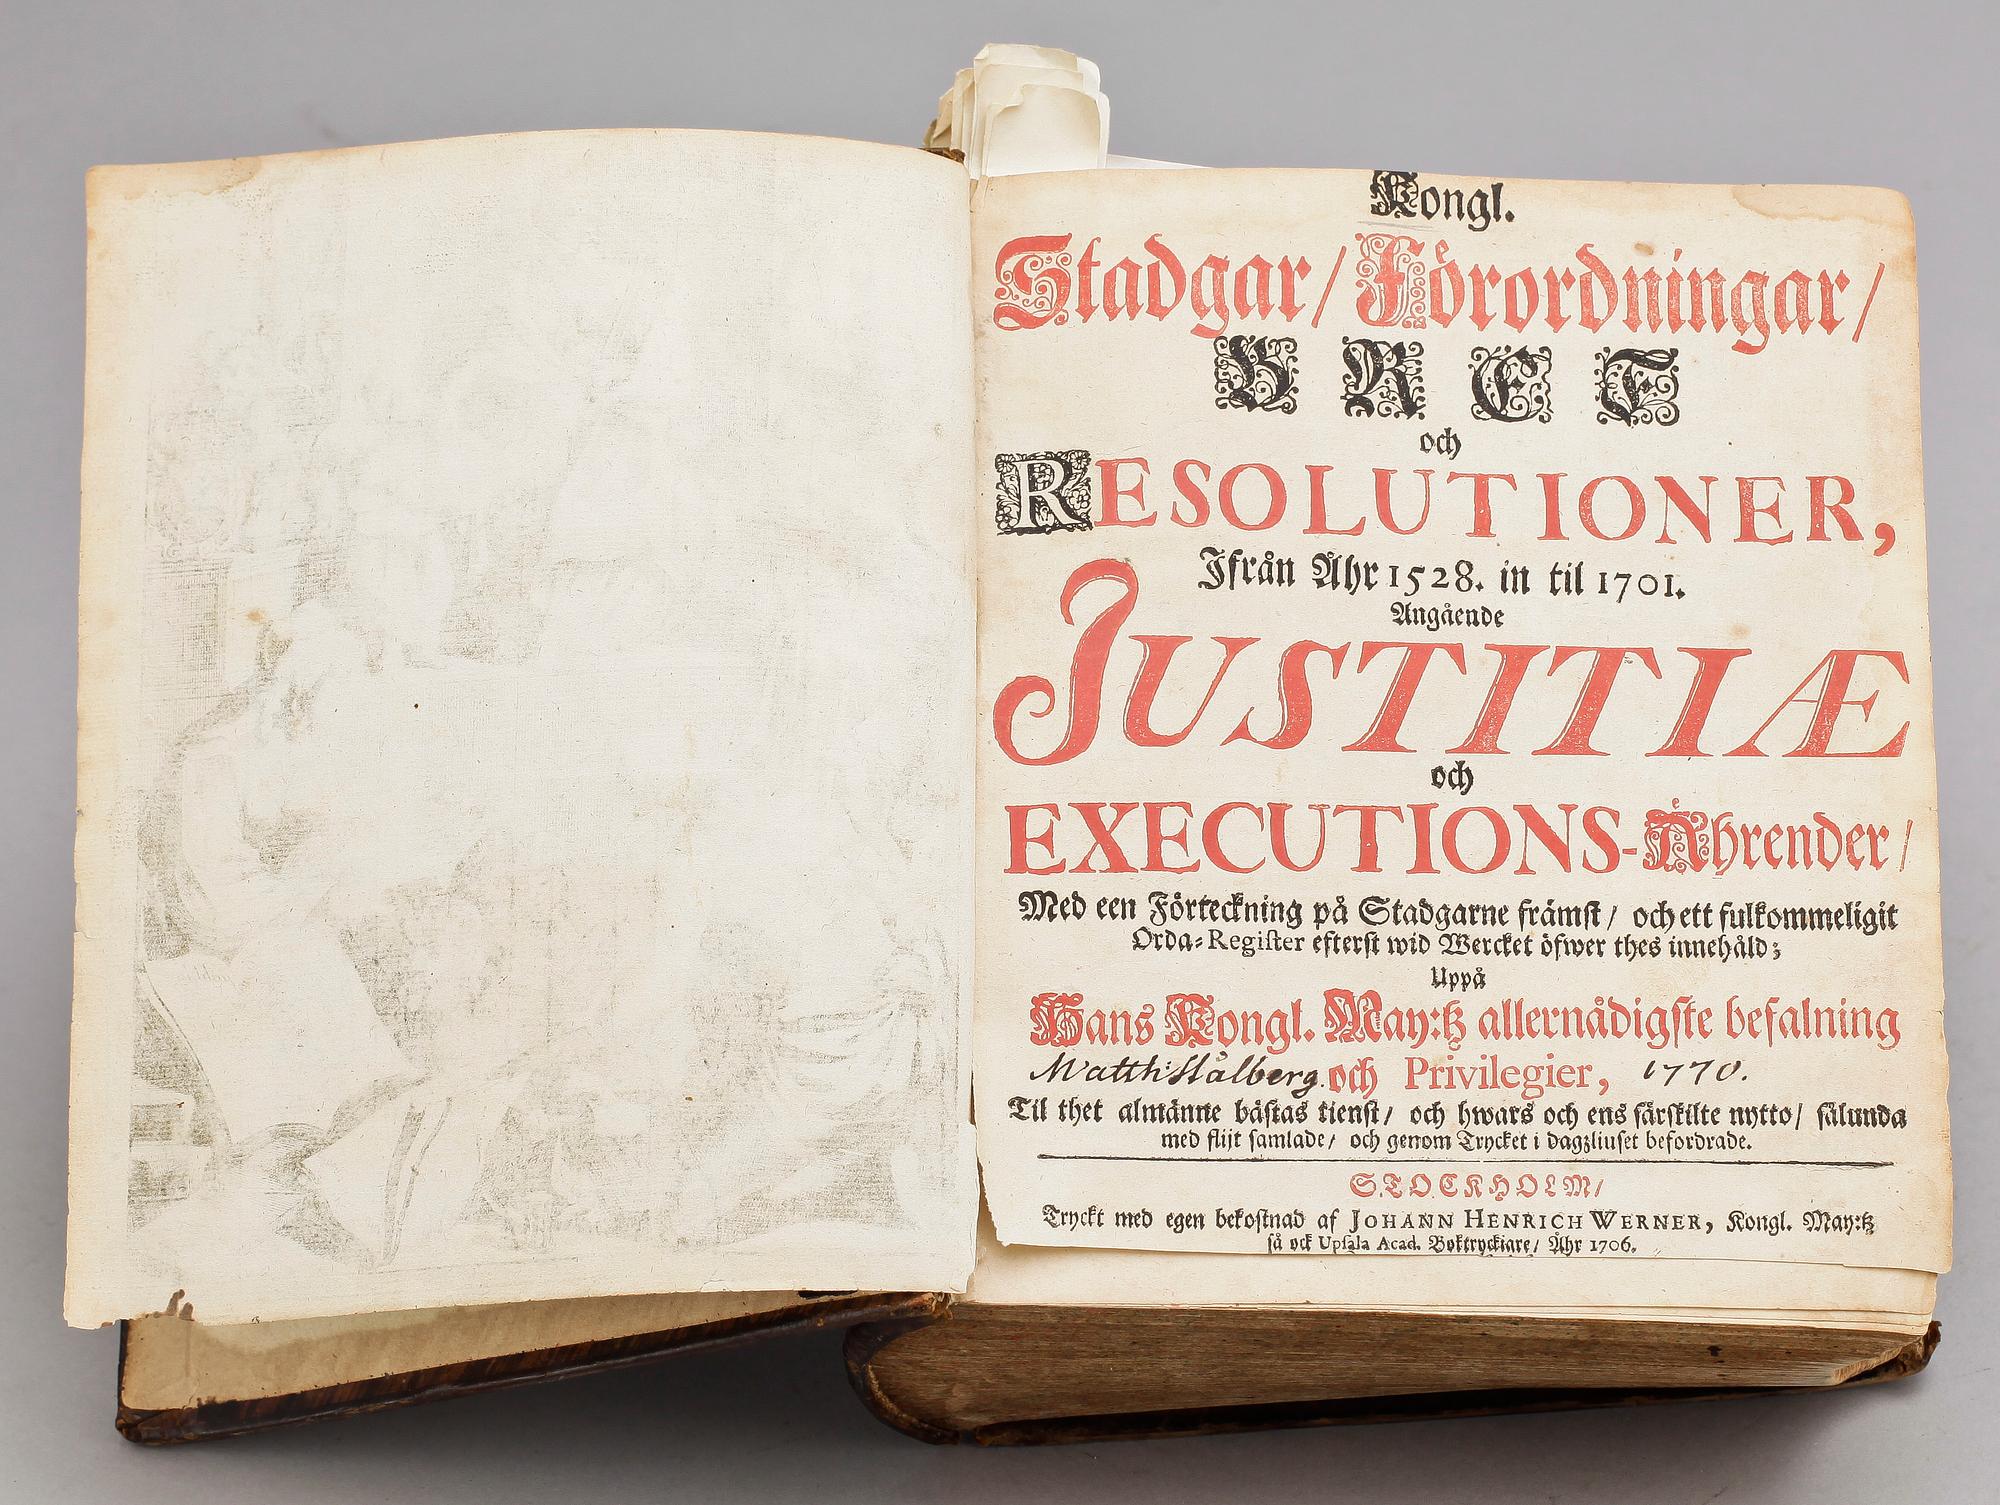 Kongl.
Stadgar/ Förordningar/
BREF
och
RESOLUTIONER,
Ifrån Åhr 1528. in til 1701.
Angående
JUSTITIÆ
och
EXECUTIONS-Åhrender/
Med een Förteckning på Stadgarne främst/ och ett fulkommeligit
Orda-Register efterst wid Wercket öfwer thes innehåld;
Uppå
Hans Kongl. May:tz allernådigste befalning
Matth: Hålberg. och Privilegier, 1770.
Til thet almänne bästas tienst/ och hwars och ens särskilte nytto/ sålunda
med flijt samlade/ och genom Trycket i dagzliuset befordrade.
STOCKHOLM/
Tryckt med egen bekostnad af JOHANN HENRICH WERNER, Kongl. May:tz
så ock Upsala Acad. Boktryckiare/ Åhr 1706.